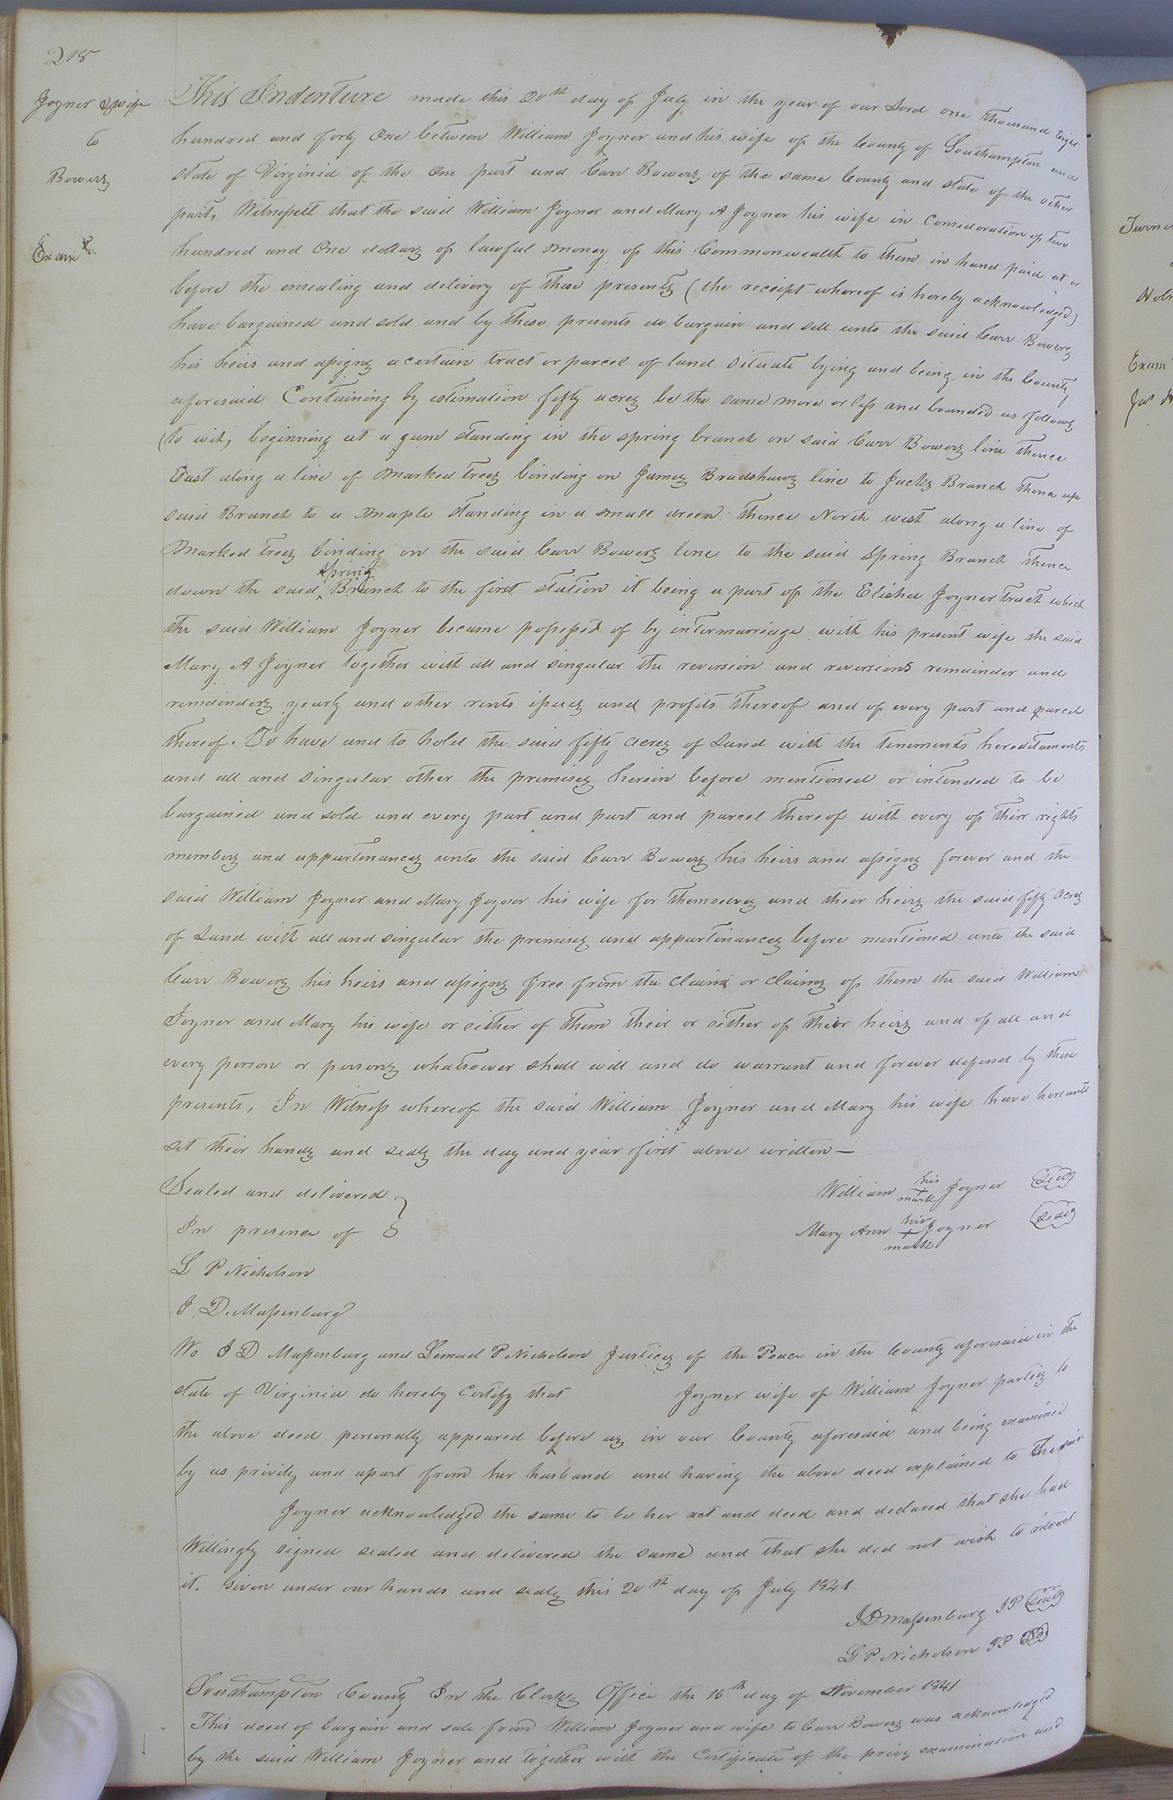 218
Joyner & wife
to
Bowers
Exam
This Indenture made this 20th day of July in the year of our Lord one thousand Eight
hundred and forty One between William Joyner and his wife of the County of Southampton and
state of Virginia of the One part and Carr Bowers of the same County and state of the other
part, Witnesseth that the said William Joyner and Mary A Joyner his wife in Consideration of two
hundred and One dollars of lawful money of this Commonwealth to them in hand paid at or
before the ensealing and delivery of these presents (the receipt whereof is hereby acknowledged)
have bargained and sold and by these presents do bargain and sell unto the said Carr Bowers
his heirs and assigns a certain tract or parcel of land situate lying and being in the County
aforesaid Containing by estimation fifty acres be the same more or less and bounded as follows
(to wit, beginning at a gum standing in the spring branch on said Carr Bowers line thence
East along a line of marked trees binding on James Bradshaws line to Jacks Branch thence up
said Branch to a maple standing in a small dreen thence North west along a line of
marked trees binding on the said Carr Bowers line to the said Spring Branch thence
down the said Spring Branch to the first station it being a part of the Elisha Joyner tract which
the said William Joyner became possessed of by intermarriage with his present wife the said
Mary A Joyner together with all and singular the reversion and reversions remainder and
remainders yearly and other rents issues and profits thereof and of every part and parcel
thereof. To have and to hold the said fifty acres of Land with the tenements hereditaments
and all and singular other the premises herein before mentioned or intended to be
bargained and sold and every part and part and parcel thereof with every of their rights
members and appurtenances unto the said Carr Bowers his heirs and assigns forever and the
said William Joyner and Mary Joyner his wife for themselves and their heirs the said fifty acres
of Land with all and singular the premises and appurtinances before mentioned unto the said
Carr Bowers his heirs and assigns free from the claim or claims of them the said William
Joyner and Mary his wife or either of them their or either of their heirs and of all and
every person or persons whatsoever shall will and do warrant and forever defend by these
presents, In Witness whereof the said William Joyner and Mary his wife have hereunto
set their hands and seals the day and year first above written—
Sealed and delivered
In presence of
L P Nicholson
J. D. Massenburg
William his + mark Joyner Seal
Mary Ann his + mark Joyner Seal
We J D Massenburg and Lemuel P Nicholson Justices of the Peace in the County aforesaid in the
state of Virginia do hereby Certify that Joyner wife of William Joyner parties to
the above deed personally appeared before us in our County aforesaid and being examined
by us privily and apart from her husband and having the above deed explained to the said
Joyner acknowledged the same to be her act and deed and declared that she had
Willingly signed sealed and delivered the same and that she did not wish to retract
it. Given under our hands and seals this 20th day of July 1841
J D Massenburg JP Seal
L P Nicholson JP Seal
Southampton County In the Clerks Office the 15th day of November 1841
This deed of bargain and sale from William Joyner and wife to Carr Bowers was acknowledged
by the said William Joyner and together with the Certificate of the privy examination and
Turner
Exam